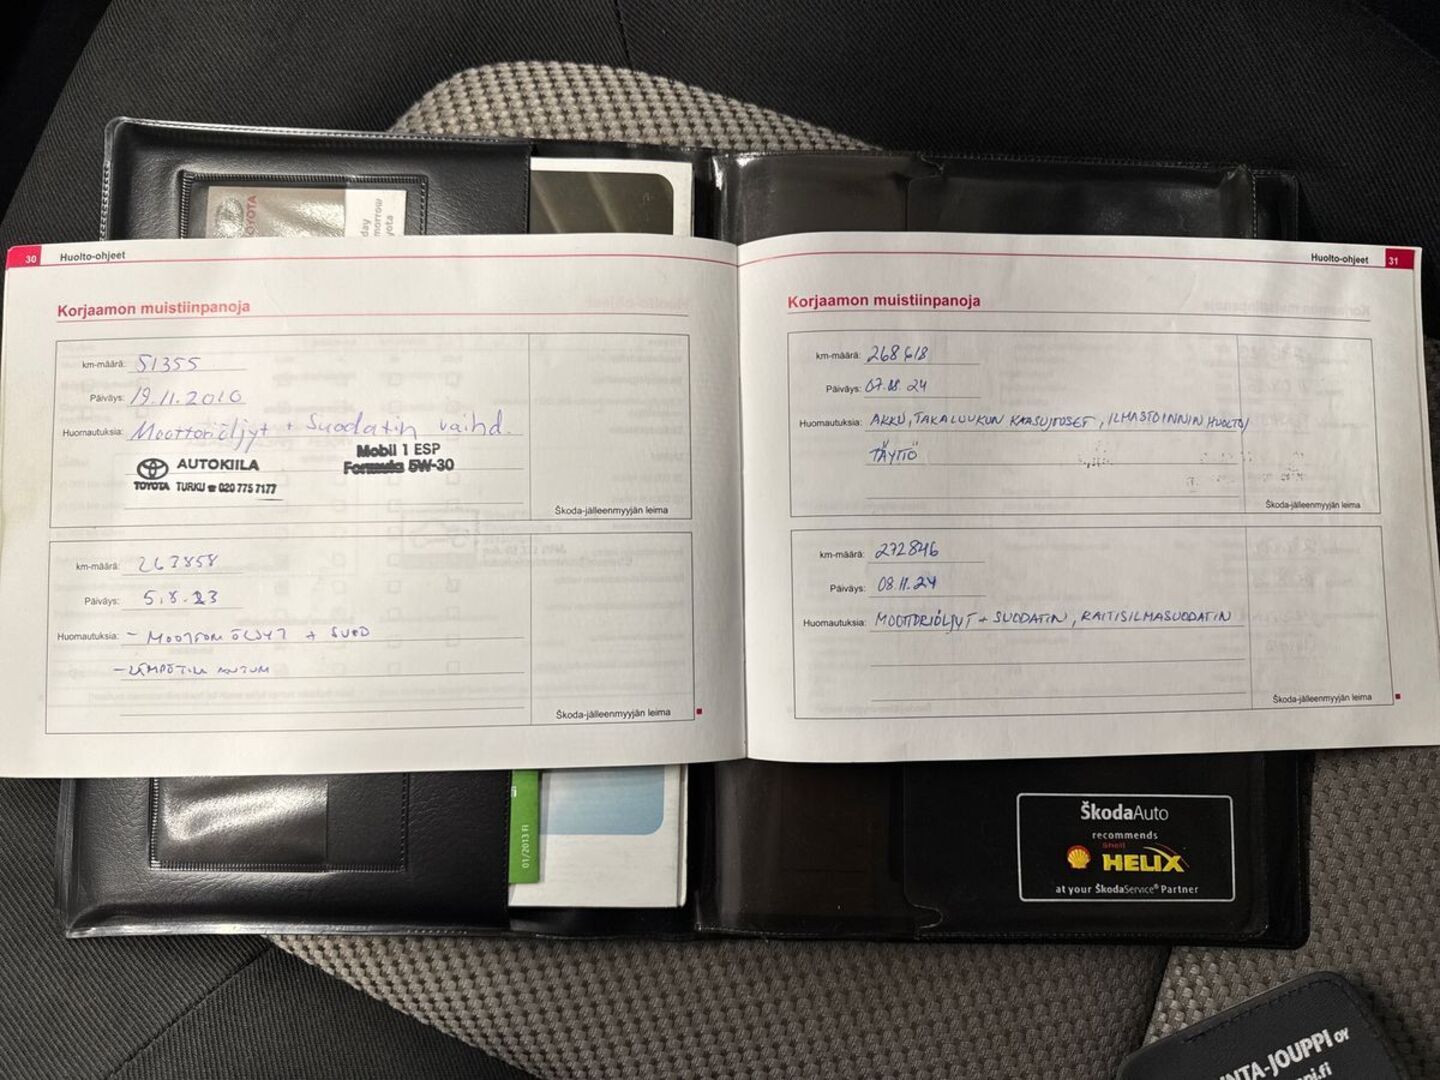 TOYOTA
30 Huolto-ohjeet
Korjaamon muistiinpanoja
km-määrä: 51355
Päiväys: 19.11.2010
Huomautuksia: Moottoriöljyt + Suodatin vaihd.
Mobil 1 ESP
Formula 5W-30
AUTOKIILA
TOYOTA TURKU ☎ 020 775 7177
Škoda-jälleenmyyjän leima
km-määrä: 263858
Päiväys: 5.8.23
Huomautuksia: - MOOTTORI ÖLJYT + SUOD
Škoda-jälleenmyyjän leima
Huolto-ohjeet 31
Korjaamon muistiinpanoja
km-määrä: 268618
Päiväys: 07.08.24
Huomautuksia: AKKU, TAKALUUKUN KAASUJOUSET, ILMASTOINNIN HUOLTO/
TÄYTTÖ
Škoda-jälleenmyyjän leima
km-määrä: 272846
Päiväys: 08.11.24
Huomautuksia: MOOTTORIÖLJYT + SUODATIN, RAITISILMASUODATIN
Škoda-jälleenmyyjän leima
01/2013 FI
ŠkodaAuto
recommends
Shell
HELIX
at your ŠkodaService® Partner
NTA-JOUPPI OY
pi.fi